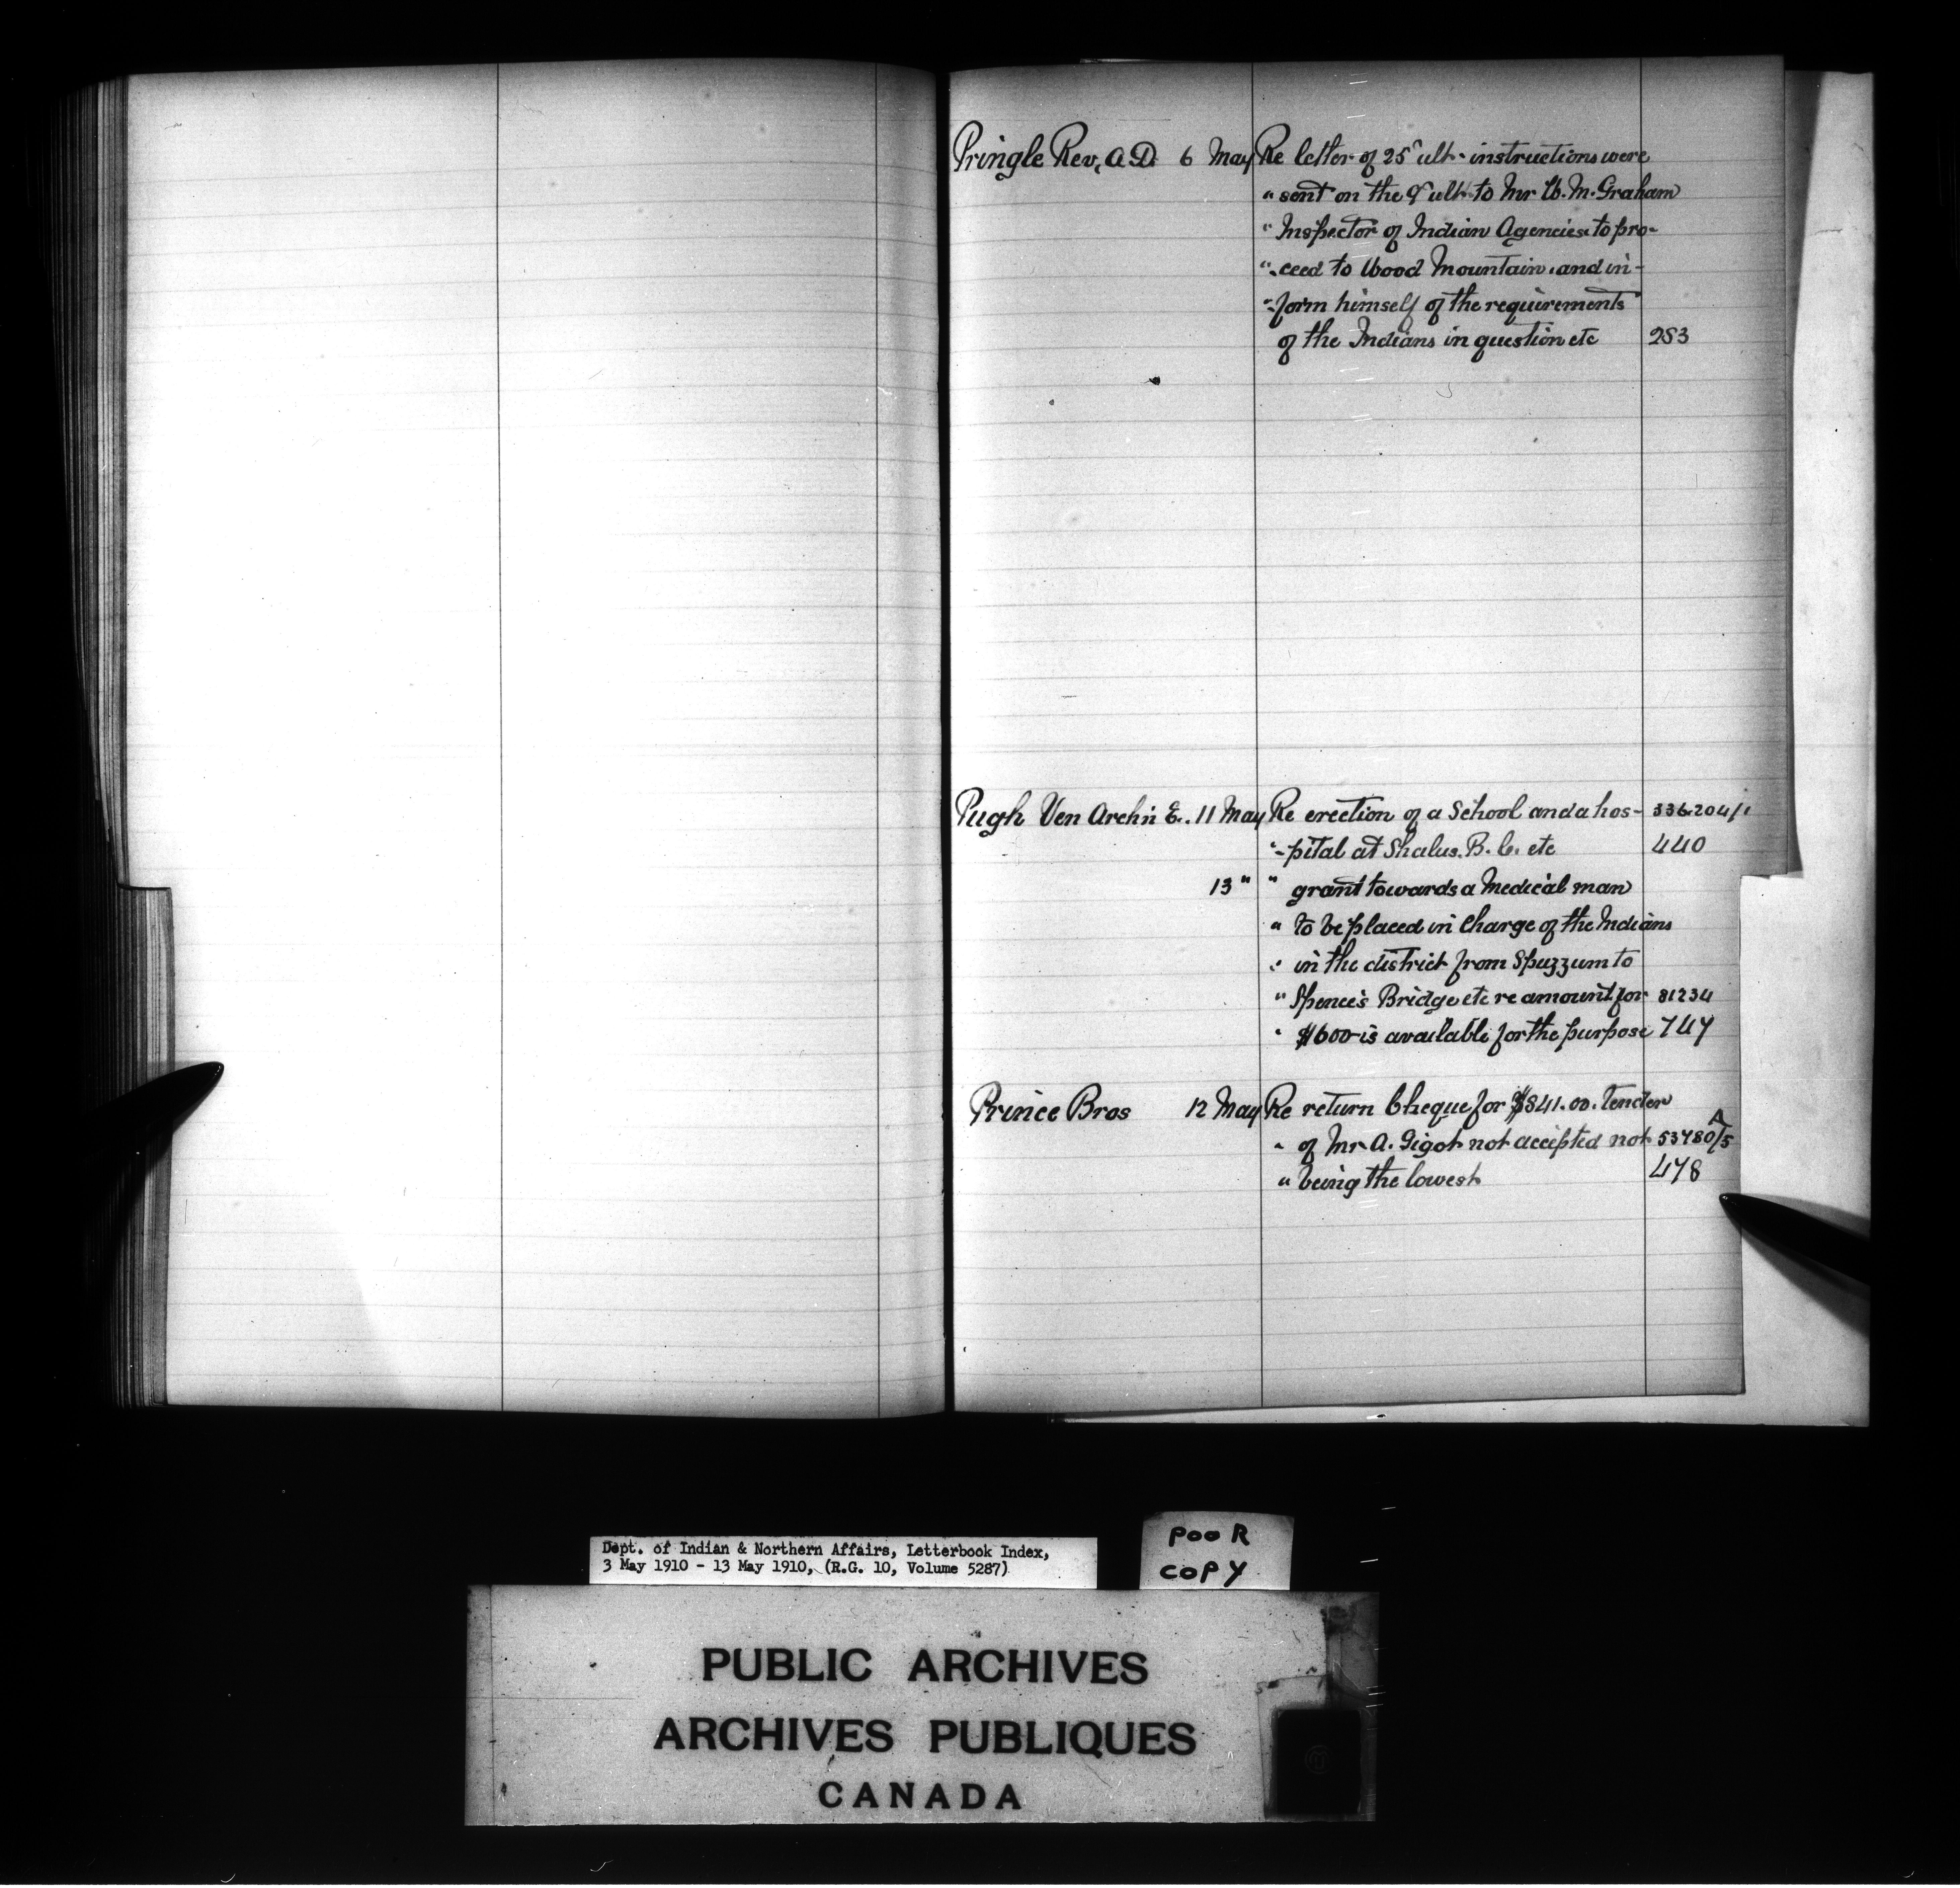 Pringle Rev, A.D. 6 May Re letter of 25" ult. instructions were
" sent on the 9" ult. to Mr W. M. Graham
" Inspector of Indian Agencies to pro-
"- ceed to Wood Mountain and in-
"- form himself of the requirements
of the Indians in question etc 283
Pugh Ven Archn E. 11 May Re erection of a School and a hos- 336.204/1
"- pital at Shalus. B.C. etc 440
13 " " grant towards a Medical man
" to be placed in Charge of the Indians
" in the district from Spuzzum to
" Spence's Bridge etc re amount for 81234
" $600 is available for the purpose 747
Prince Bros 12 May Re return Cheque for $841.00. Tender
" of Mr. A. Gigot not accepted not 53480/5 A
" being the lowest 478
Dept. of Indian & Northern Affairs, Letterbook Index,
3 May 1910 - 13 May 1910, (R.G. 10, Volume 5287)
POOR
COPY
PUBLIC ARCHIVES
ARCHIVES PUBLIQUES
CANADA